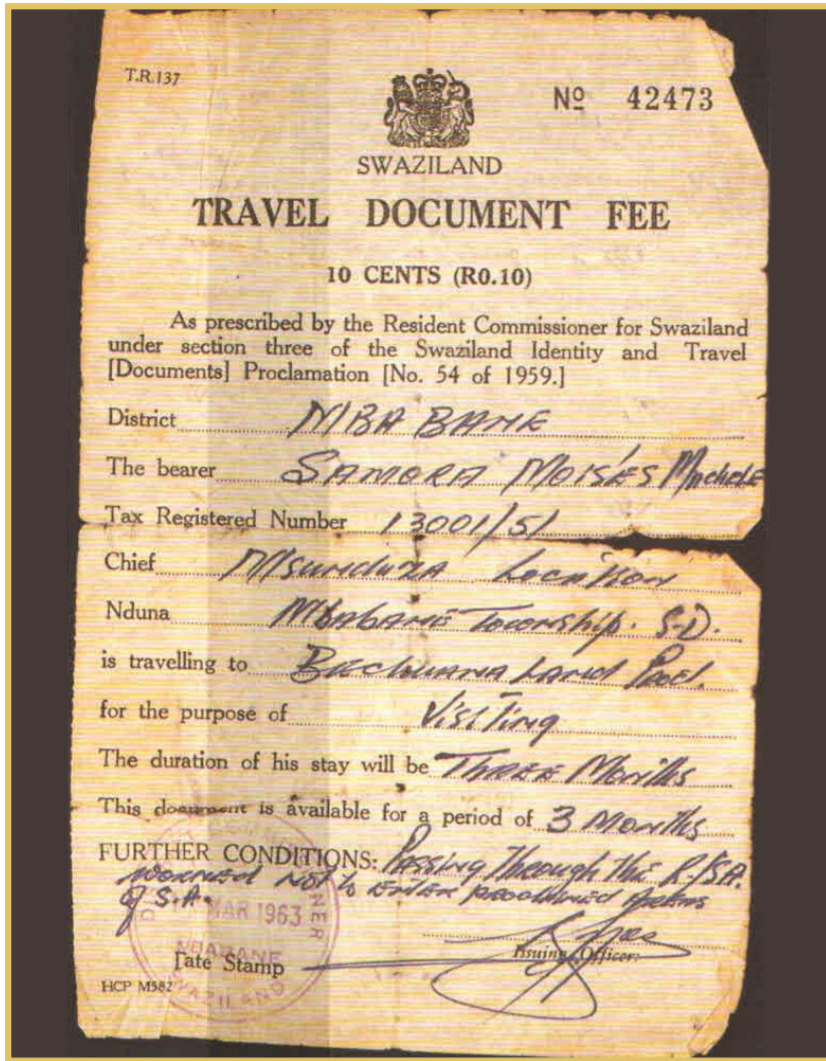 T.R.137
Nº 42473
SWAZILAND
TRAVEL DOCUMENT FEE
10 CENTS (R0.10)
As prescribed by the Resident Commissioner for Swaziland
under section three of the Swaziland Identity and Travel
[Documents] Proclamation [No. 54 of 1959.]
District MBABANE
The bearer SAMORA MOISÉS Machele
Tax Registered Number 13001/51
Chief Msunduza Location
Nduna Mbabane Township. S-D.
is travelling to Bechuana Land Prot.
for the purpose of Visiting
The duration of his stay will be Three Months
This document is available for a period of 3 Months
FURTHER CONDITIONS: Passing Through the R/SA.
Worned not to enter proclaimed Areas
of S.A.
MAR 1963
MBABANE
SWAZILAND
Date Stamp
Issuing Officer:
HCP M582